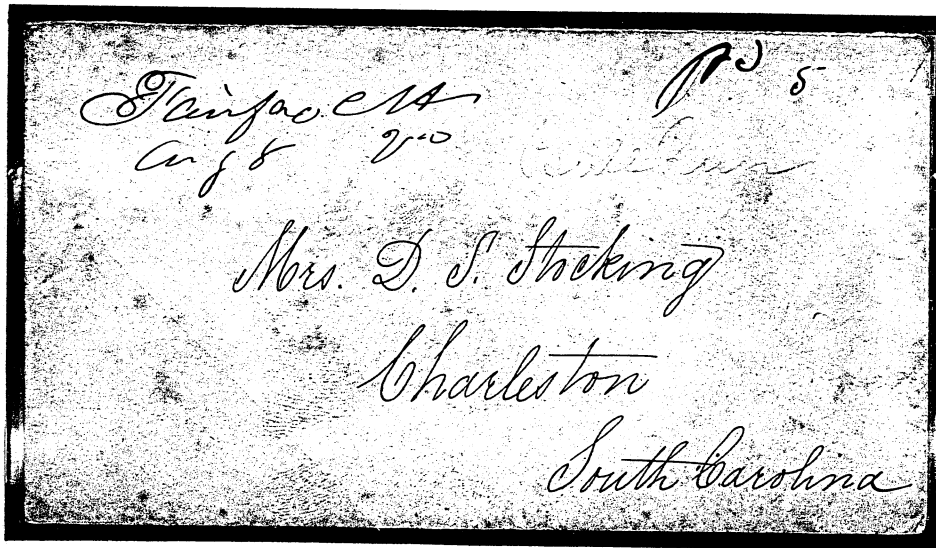 Fairfax C H
Aug 8
Pd 5
Mrs. D. S. Stocking
Charleston
South Carolina